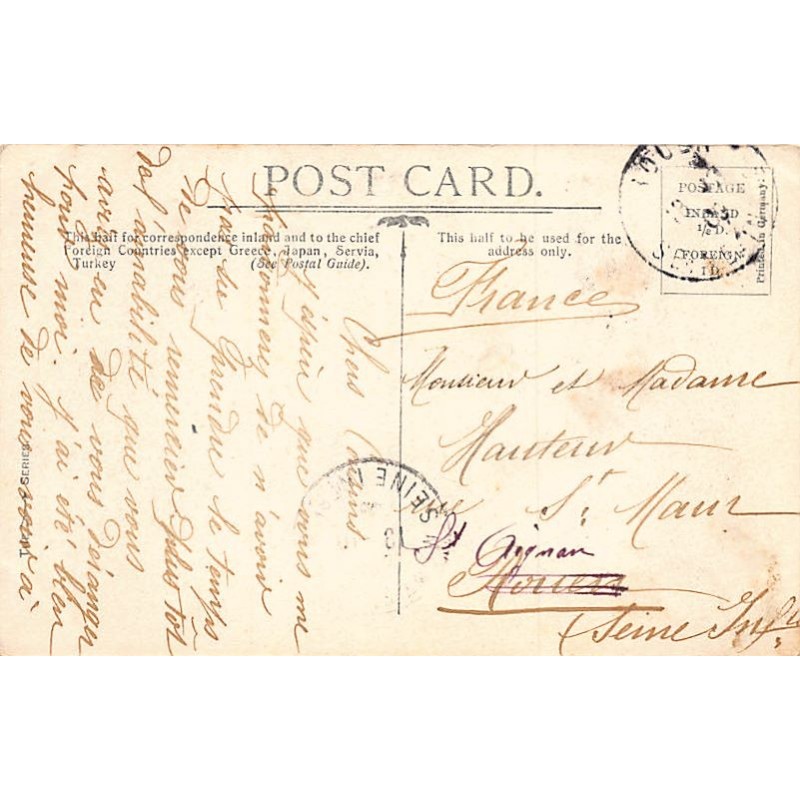 POST CARD.
This half for correspondence inland and to the chief
Foreign Countries except Greece, Japan, Servia,
Turkey (See Postal Guide).
This half to be used for the
address only.
POSTAGE
INLAND
½ D.
FOREIGN
1 D.
Printed in Germany.
SERIES
SEINE
France
Monsieur et Madame
Hauteur
Rue St Maur
St Aignan
Rouen
Seine Infre
Chers
J'espère que vous me
de n'avoir
pas su prendre le temps
de vous remercier plus tôt
de l'amabilité que vous
avez eu de vous déranger
pour moi. J'ai été bien
heureuse de vous voir à